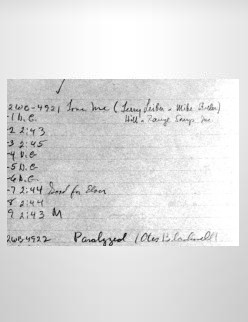 2WB-4921 Love Me (Jerry Leiber - Mike Stoller)
Hill & Range Songs Inc
-1 D.C
-2 2:43
-3 2:45
-4 D.C
-5 D.C
-6 D.C
-7 2:44 Good for Elvis
-8 2:44
-9 2:43 M
2WB-4922 Paralyzed (Otis Blackwell)